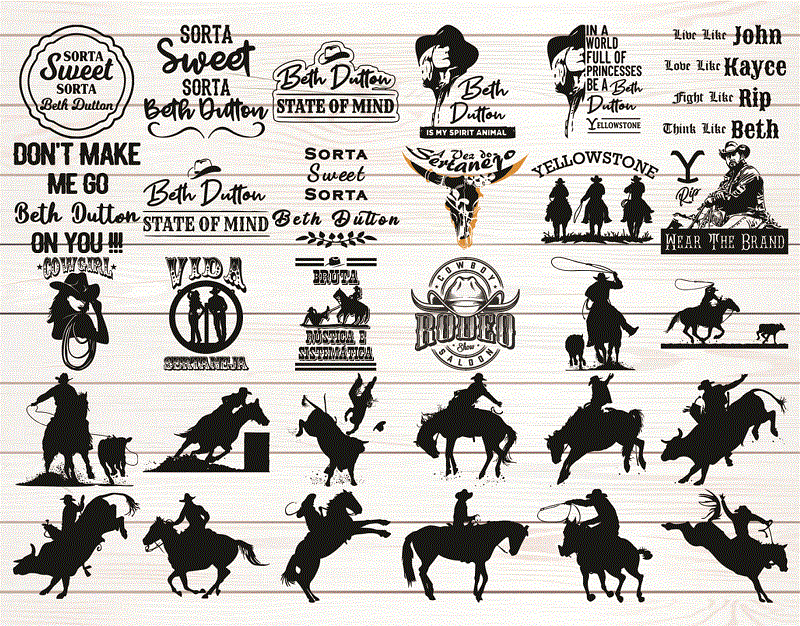 SORTA
Sweet
SORTA
Beth Dutton
SORTA
Sweet
SORTA
Beth Dutton
Beth Dutton
STATE OF MIND
Beth
Dutton
IS MY SPIRIT ANIMAL
IN A
WORLD
FULL OF
PRINCESSES
BE A Beth
Dutton
YELLOWSTONE
Live Like John
Love Like Kayce
Fight Like Rip
Think Like Beth
DON'T MAKE
ME GO
Beth Dutton
ON YOU !!!
Beth Dutton
STATE OF MIND
SORTA
Sweet
SORTA
Beth Dutton
A Vez do
Sertanejo
YELLOWSTONE
Y
Rip
WEAR THE BRAND
COWGIRL
VIDA
SERTANEJA
BRUTA
RÚSTICA E
SISTEMÁTICA
COWBOY
RODEO
Show
SALOON